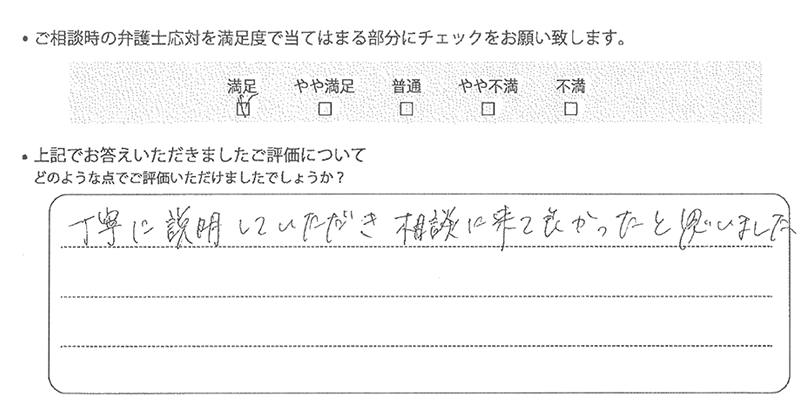 ・ご相談時の弁護士応対を満足度で当てはまる部分にチェックをお願い致します。
満足 やや満足 普通 やや不満 不満
☑ □ □ □ □
・上記でお答えいただきましたご評価について
どのような点でご評価いただけましたでしょうか？
丁寧に説明していただき 相談に来て良かったと思いました